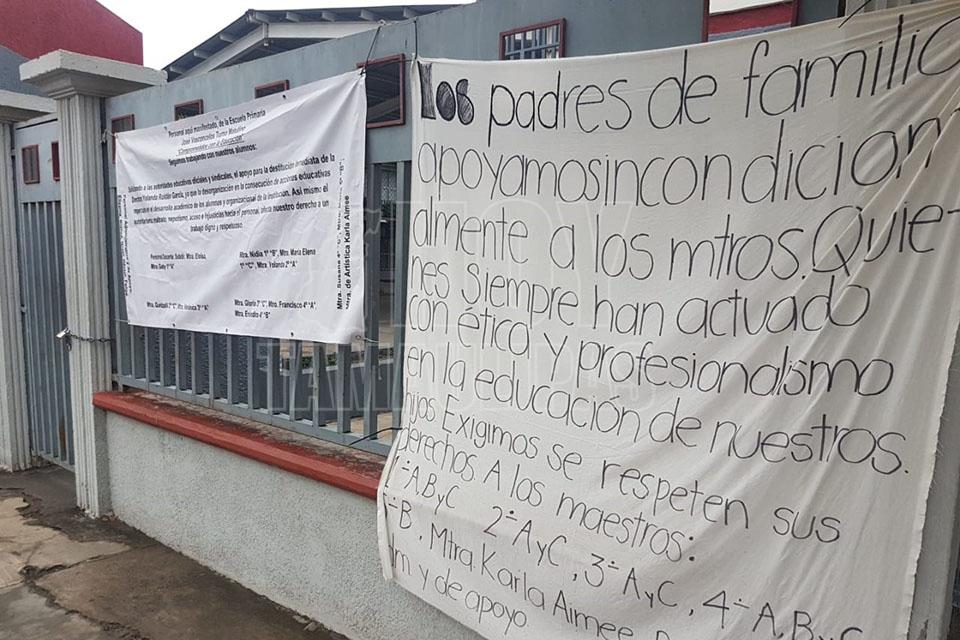 Personal aquí manifestado, de la Escuela Primaria
José Vasconcelos Turno Matutino
"Comprometidos con la Educación"
Seguimos trabajando con nuestros alumnos:
Solicitando a las autoridades educativas oficiales y sindicales, el apoyo para la destitución inmediata de la
Yolanda Roldán García, ya que la desorganización en la consecución de acciones educativas
repercute en el desarrollo académico de los alumnos y organizacional de la institución. Así mismo el
autoritarismo, maltrato, nepotismo, acoso e injusticias hacia el personal, afecta nuestro derecho a un
trabajo digno y respetuoso.
Personal Docente: Subdir. Mtra. Eloisa,
Mtra. Gaby 1° "A"
Mtra. Nidia 1° "B", Mtra. María Elena
1° "C", Mtra. Yolanda 2° "A"
Mtra. Gloria 3° "C", Mtro. Francisco 4° "A",
4° "B"
Mtra. Susana
Mtra. de Artística Karla Aimee
los padres de familia
apoyamos incondicion
almente a los mtros. Quie-
nes siempre han actuado
con ética y profesionalismo
en la educación de nuestros.
hijos. Exigimos se respeten sus
derechos A los maestros:
1° A, B y C 2° A y C, 3° A y C, 4° A, B y C
° B, Mtra. Karla Aimee
y de apoyo
HOY
TAMAULIPAS